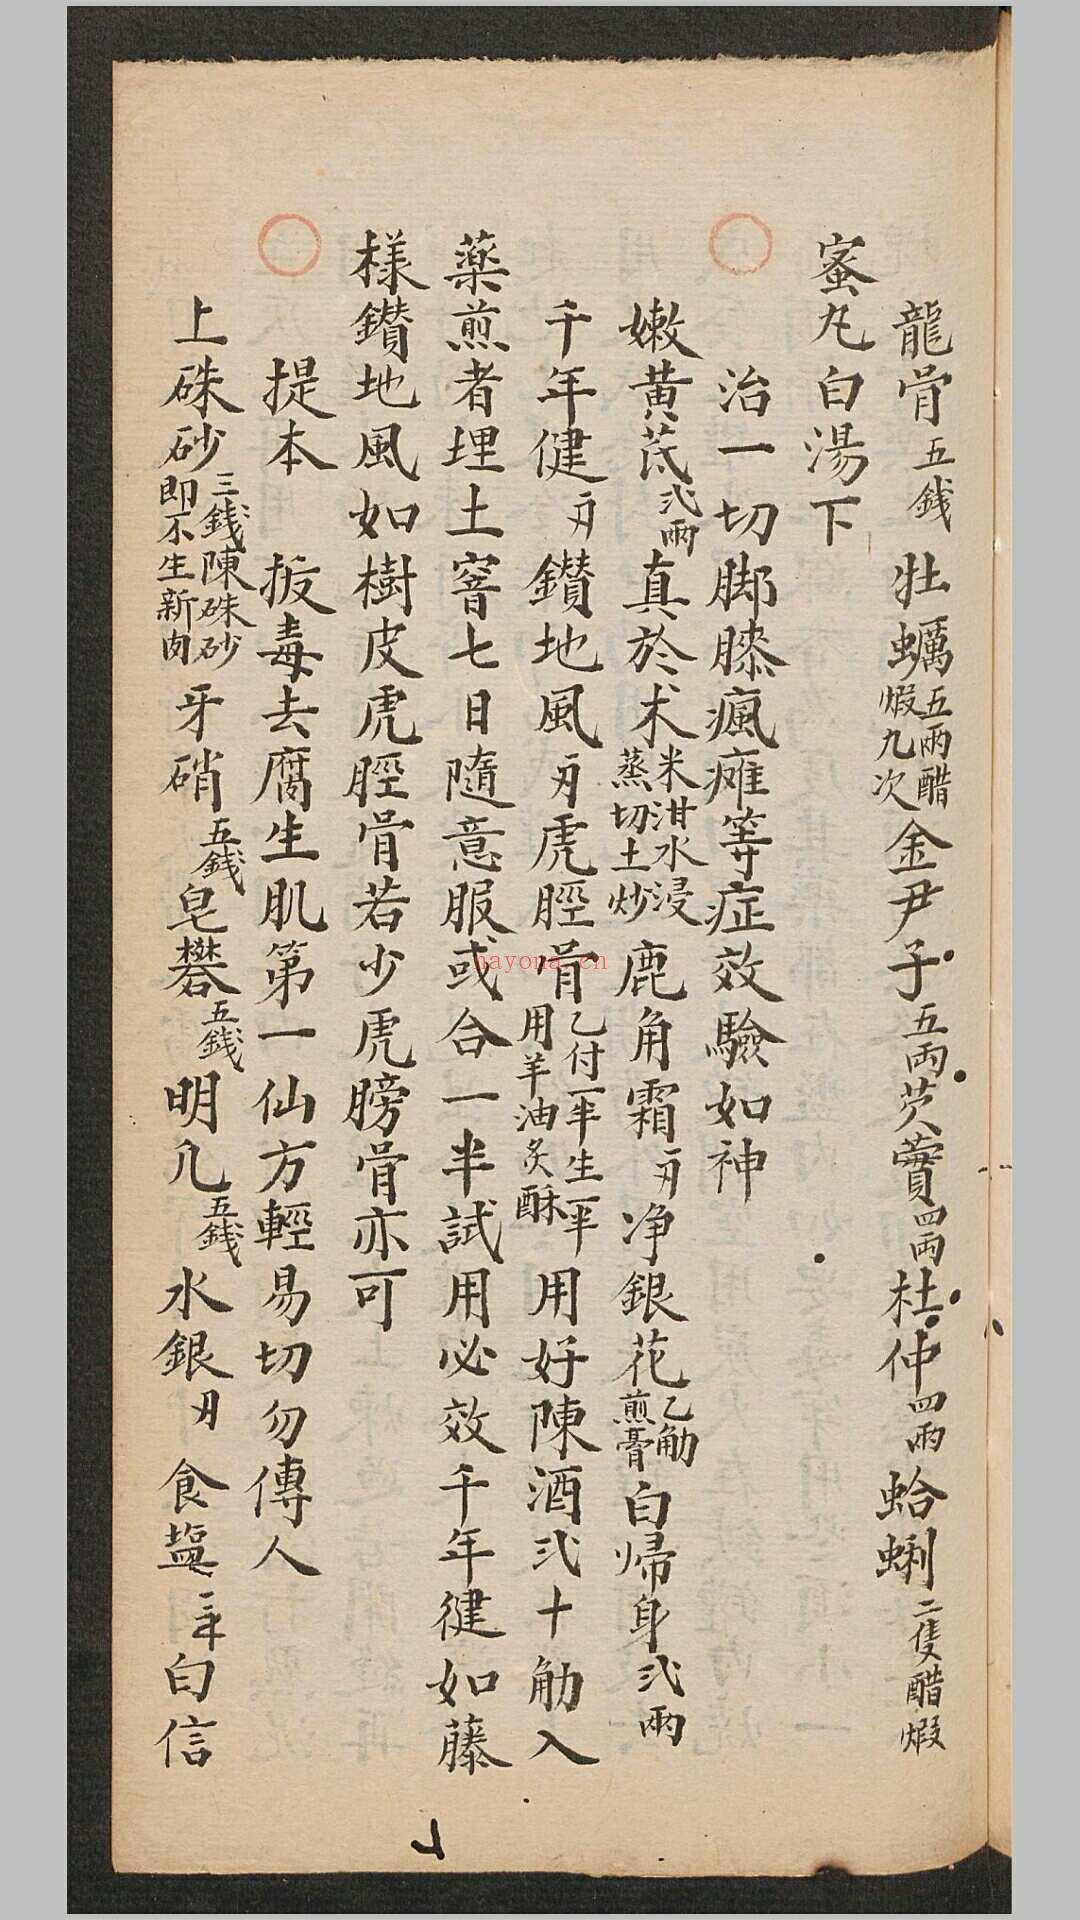 龍骨五錢 牡蠣五兩醋煆九次金尹子五兩芡蕒四兩杜仲四兩蛤蜊二隻醋煆
蜜丸白湯下
治一切脚膝瘋瘫等症效驗如神
嫩黄茋弍兩真於术米泔水浸蒸切土炒鹿角霜刄净銀花乙觔煎膏白帰身弍兩
千年健刄鑽地風刄虎脛骨乙付一半生一半用羊油炙酥用好陳酒弍十觔入
薬煎者埋土窨七日隨意服或合一半試用必效千年徤如藤
様鑽地風如樹皮虎脛骨若少虎膀骨亦可
提本 扳毒去腐生肌第一仙方輕易切勿傳人
上硃砂三錢陳硃砂即不生新肉牙硝五錢皂礬五錢明几五錢水銀刄食塩白信
nayona.cn